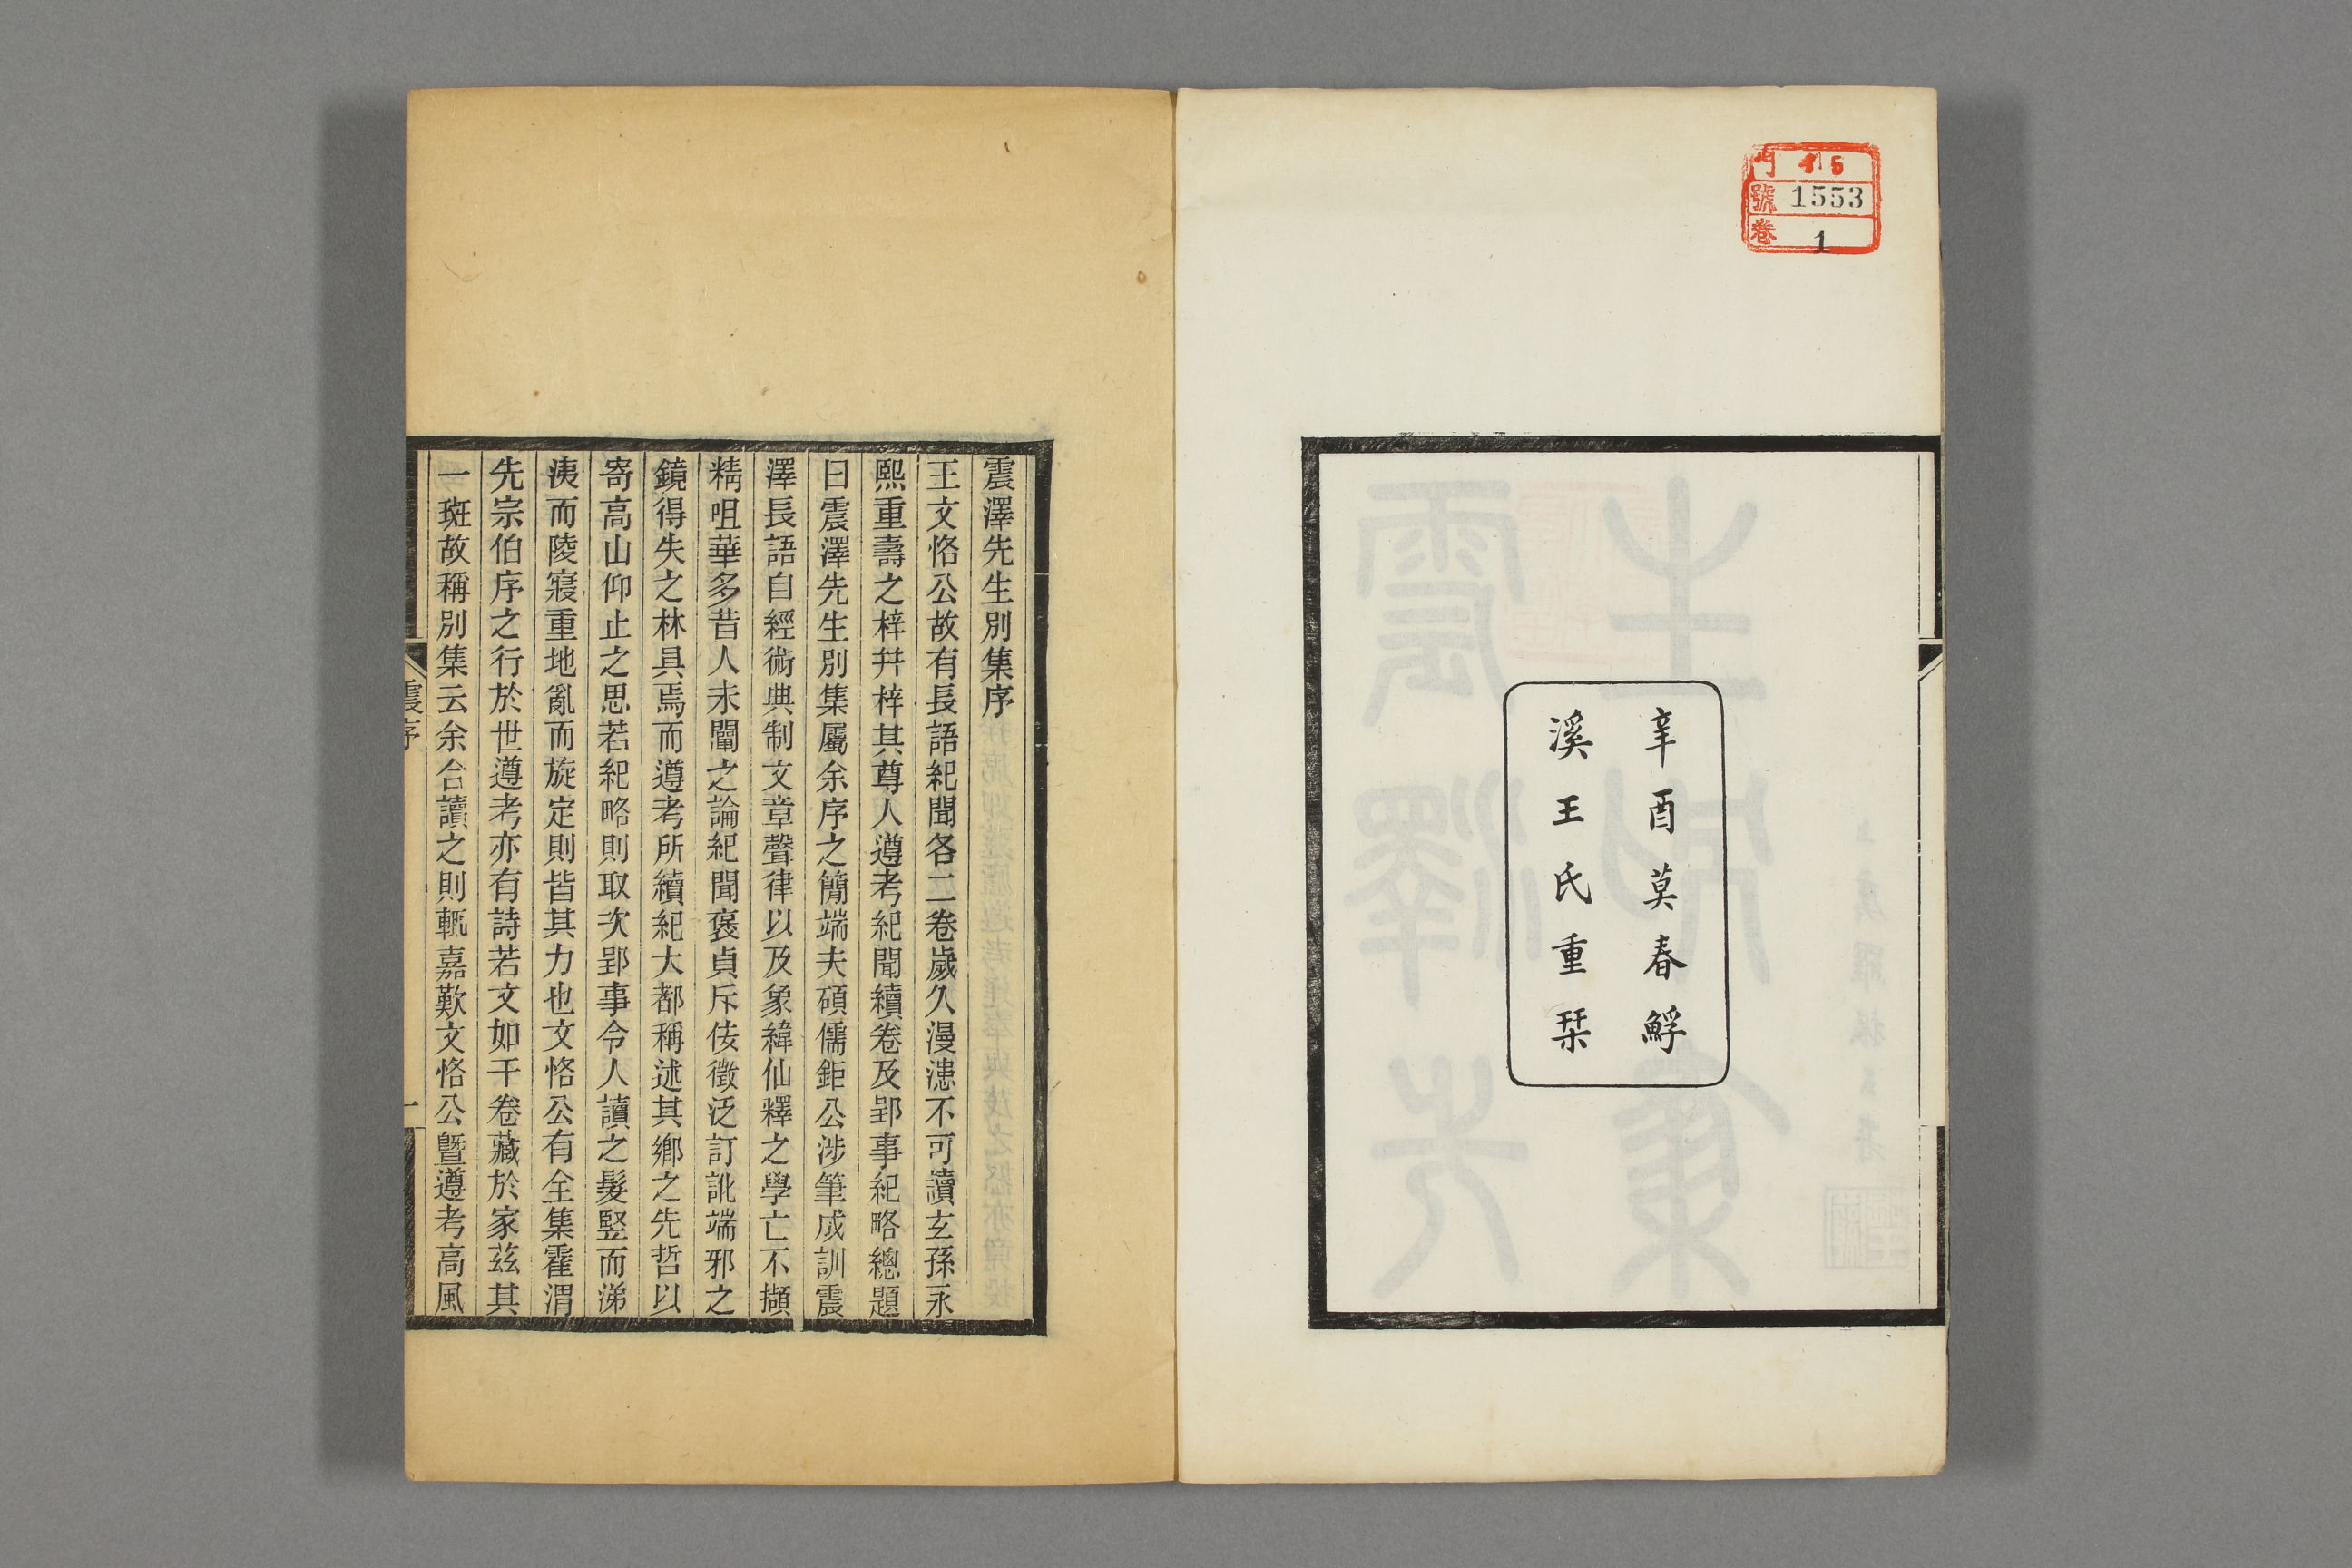 門 45
號 1553
卷 1
辛酉莫春鯚
溪王氏重栞
震澤先生別集序
王文恪公故有長語紀聞各二卷歲久漫漶不可讀玄孫永
熙重壽之梓幷梓其尊人遵考紀聞續卷及郢事紀略總題
曰震澤先生別集屬余序之簡端夫碩儒鉅公涉筆成訓震
澤長語自經術典制文章聲律以及象緯仙釋之學亡不擷
精咀華多昔人未闡之論紀聞褒貞斥佞徵泛訂訛端邪之
鏡得失之林具焉而遵考所續紀大都稱述其鄉之先哲以
寄高山仰止之思若紀略則取次郢事令人讀之髮竪而涕
洟而陵寢重地亂而旋定則皆其力也文恪公有全集霍渭
先宗伯序之行於世遵考亦有詩若文如干卷藏於家茲其
一斑故稱別集云余合讀之則輒嘉歎文恪公曁遵考高風
震序
一